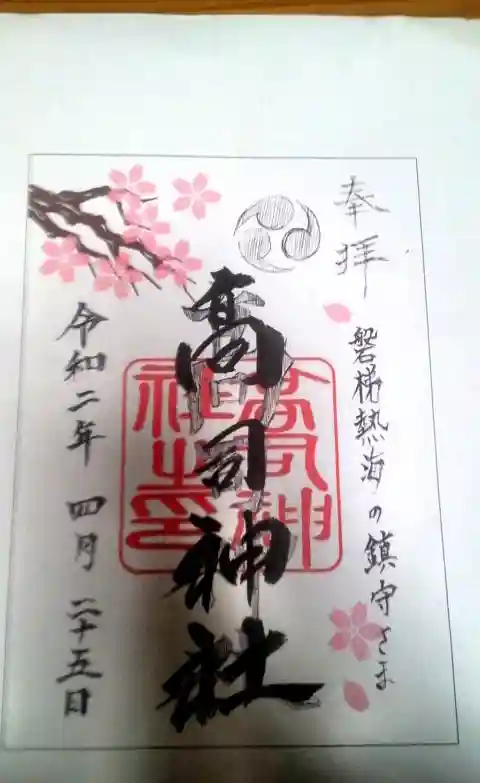 奉拝
磐梯熱海の鎮守さま
高司神社
高司神社之印
令和二年 四月 二十五日